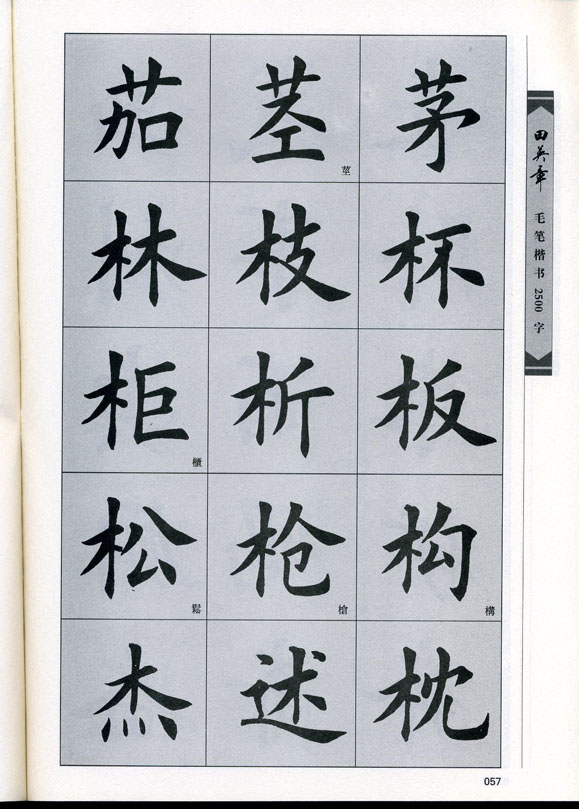 茄 茎 茅
莖
林 枝 杯
柜 析 板
櫃
松 枪 构
鬆 槍 構
杰 述 枕
田英章
毛笔楷书2500字
057